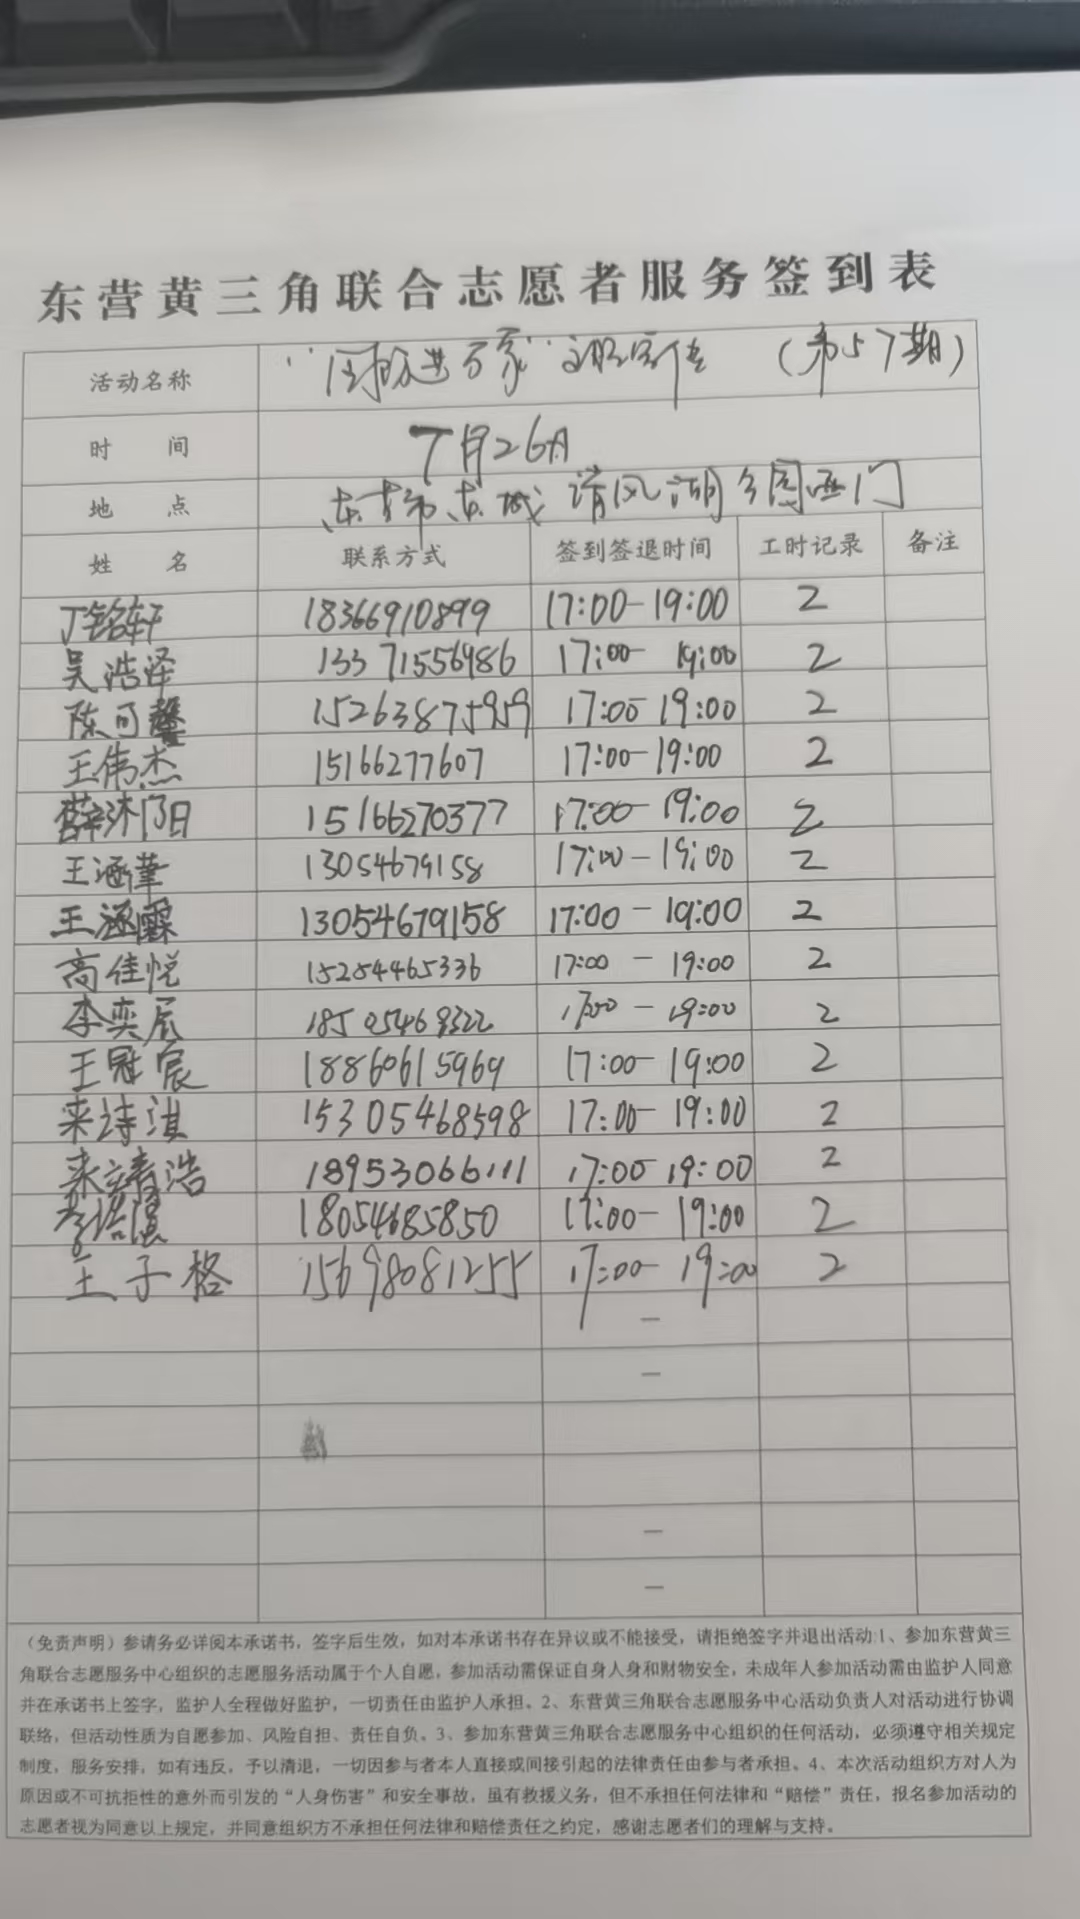 东营黄三角联合志愿者服务签到表
活动名称 （第57期）
时间 7月26日
地点 东营市东城清风湖公园西门
姓名 联系方式 签到签退时间 工时记录 备注
丁铭轩 18366910899 17:00-19:00 2
吴浩泽 13371556986 17:00 19:00 2
陈可馨 15263875959 17:00 19:00 2
王伟杰 15166277607 17:00-19:00 2
薛沐阳 15166270377 17:00-19:00 2
王涵 13054679158 17:00-19:00 2
王涵霖 13054679158 17:00-19:00 2
高佳悦 15254465336 17:00-19:00 2
李奕辰 17:00-19:00 2
王冠宸 18860615969 17:00-19:00 2
来诗淇 15305468598 17:00-19:00 2
来靖浩 18953066111 17:00 19:00 2
18054685850 17:00-19:00 2
王子格 15698081255 17:00-19:00 2
—
—
—
—
（免责声明）参请务必详阅本承诺书，签字后生效，如对本承诺书存在异议或不能接受，请拒绝签字并退出活动:1、参加东营黄三
角联合志愿服务中心组织的志愿服务活动属于个人自愿，参加活动需保证自身人身和财物安全，未成年人参加活动需由监护人同意
并在承诺书上签字，监护人全程做好监护，一切责任由监护人承担。2、东营黄三角联合志愿服务中心活动负责人对活动进行协调
联络，但活动性质为自愿参加、风险自担、责任自负。3、参加东营黄三角联合志愿服务中心组织的任何活动，必须遵守相关规定
制度，服务安排，如有违反，予以清退，一切因参与者本人直接或间接引起的法律责任由参与者承担。4、本次活动组织方对人为
原因或不可抗拒性的意外而引发的“人身伤害”和安全事故，虽有救援义务，但不承担任何法律和“赔偿”责任，报名参加活动的
志愿者视为同意以上规定，并同意组织方不承担任何法律和赔偿责任之约定，感谢志愿者们的理解与支持。